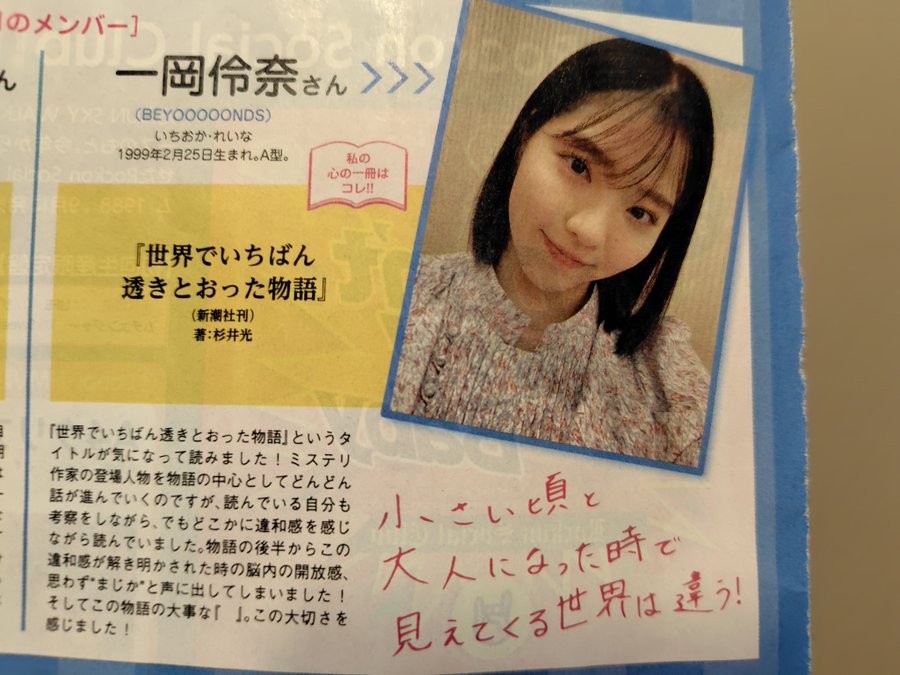 のメンバー]
ん
一岡伶奈さん >>>
(BEYOOOOONDS)
いちおか・れいな
1999年2月25日生まれ。A型。
私の
心の一冊は
コレ!!
『世界でいちばん
透きとおった物語』
(新潮社刊)
著:杉井光
『世界でいちばん透きとおった物語』というタ
イトルが気になって読みました!ミステリ
作家の登場人物を物語の中心としてどんどん
話が進んでいくのですが、読んでいる自分も
考察をしながら、でもどこかに違和感を感じ
ながら読んでいました。物語の後半からこの
違和感が解き明かされた時の脳内の開放感、
思わず"まじか"と声に出してしまいました!
そしてこの物語の大事な『　』。この大切さを
感じました!
小さい頃と
大人になった時で
見えてくる世界は違う!